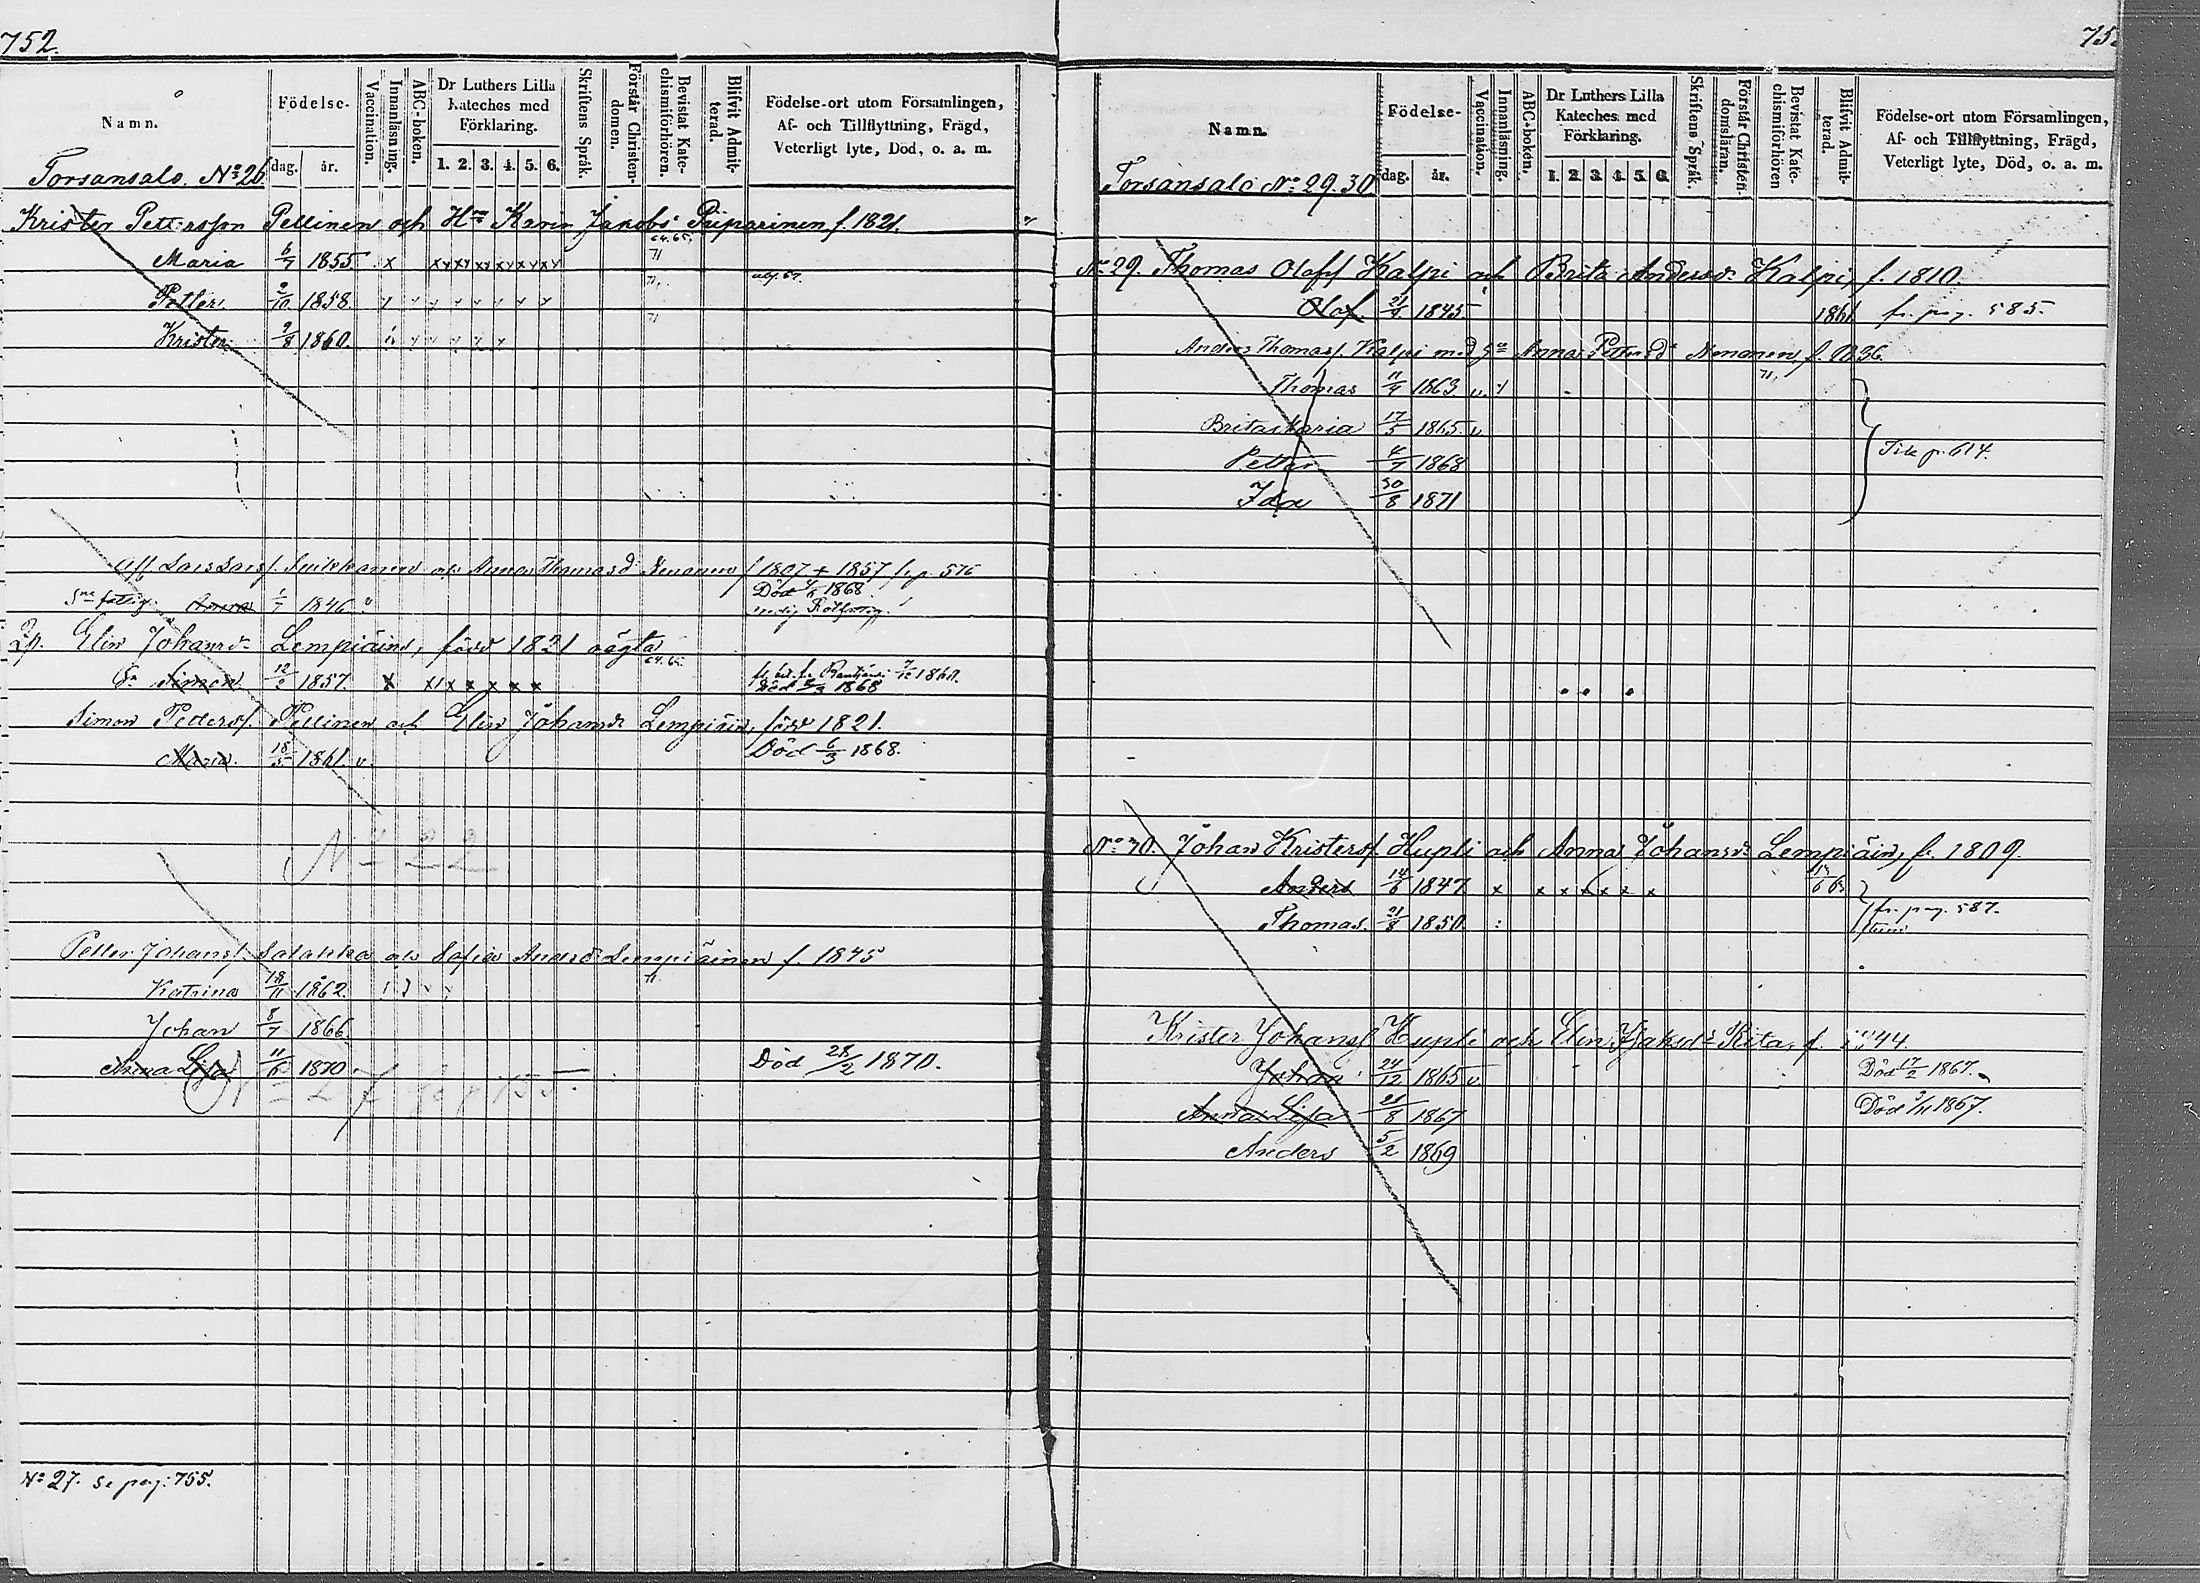 752.
Namn.
Födelse-
dag. år.
Vaccination.
Innanläsning.
ABC-boken.
Dr Luthers Lilla Kateches med Förklaring.
1. 2. 3. 4. 5. 6.
Skriftens Språk.
Förstår Christendomen.
Bevistat Katechismiförhören.
Blifvit Admitterad.
Födelse-ort utom Församlingen, Af- och Tillflyttning, Frägd, Veterligt lyte, Död, o. a. m.
Torsansalo. No 26.
Krister Pettersson Pellinen och Hu Karin Jakobs Piiparinen f. 1821.
64.65.
Maria 6/7 1855. x xy xy xy xy xy xy 71
Petter 2/10 1858. 71
Krister 9/8 1860. 71
Lars Larsf. Suikkanen och Anna Thomasd Nenonen f 1807 + 1857 fr p. 576
Anna 1/7 1846. v Död 1868.
Elin Johansdr Lempiäin, född 1821 oägta
64.65.
Sn Simon 12/2 1857. x x x x x x x 1860.
Död 1868
Simon Pettersf. Pellinen och Elin Johansdr Lempiäin, född 1821.
Maria. 18/5 1861. v Död 6/3 1868.
No 22
Petter Johansf. Salakka och Sofia Andersd Lempiäinen f. 1845
Katrina 18/11 1862. 71
Johan 8/7 1866.
Anna Lisa 11/6 1870 Död 28/2 1870.
No 27. se pag: 755.
75
Namn.
Födelse-
dag. år.
Vaccination.
Innanläsning.
ABC-boken.
Dr Luthers Lilla Kateches med Förklaring.
1. 2. 3. 4. 5. 6.
Skriftens Språk.
Förstår Christendomsläran.
Bevistat Katechismiförhören
Blifvit Admitterad.
Födelse-ort utom Församlingen, Af- och Tillflyttning, Frägd, Veterligt lyte, Död, o. a. m.
Torsansalo No 29. 30
No 29. Thomas Olofsf Kalpi och Brita Andersdr Kalpi, f. 1810.
Olof. 1845. 1861 fr. pag. 585.
Anders Thomasf. Kalpi med Hu Anna Pettersdr Nenonen f. 1836.
Thomas 11/4 1863. v. 71
Brita Maria 17/5 1865. v
Petter 4/7 1868
Ida 30/8 1871
p. 614.
No 30. Johan Kristersf. Hupli och Anna Johansdr Lempiäin, f. 1809.
Anders 14/6 1847 x x x x x x x
Thomas. 21/8 1850. fr. pag. 587.
Krister Johansf Hupli och Elin Jakobsdr Rita, f. 44.
Johan 24/12 1865 v Död 17/2 1867.
Anna Lisa 21/8 1867 Död 3/11 1867.
Anders 5/2 1869